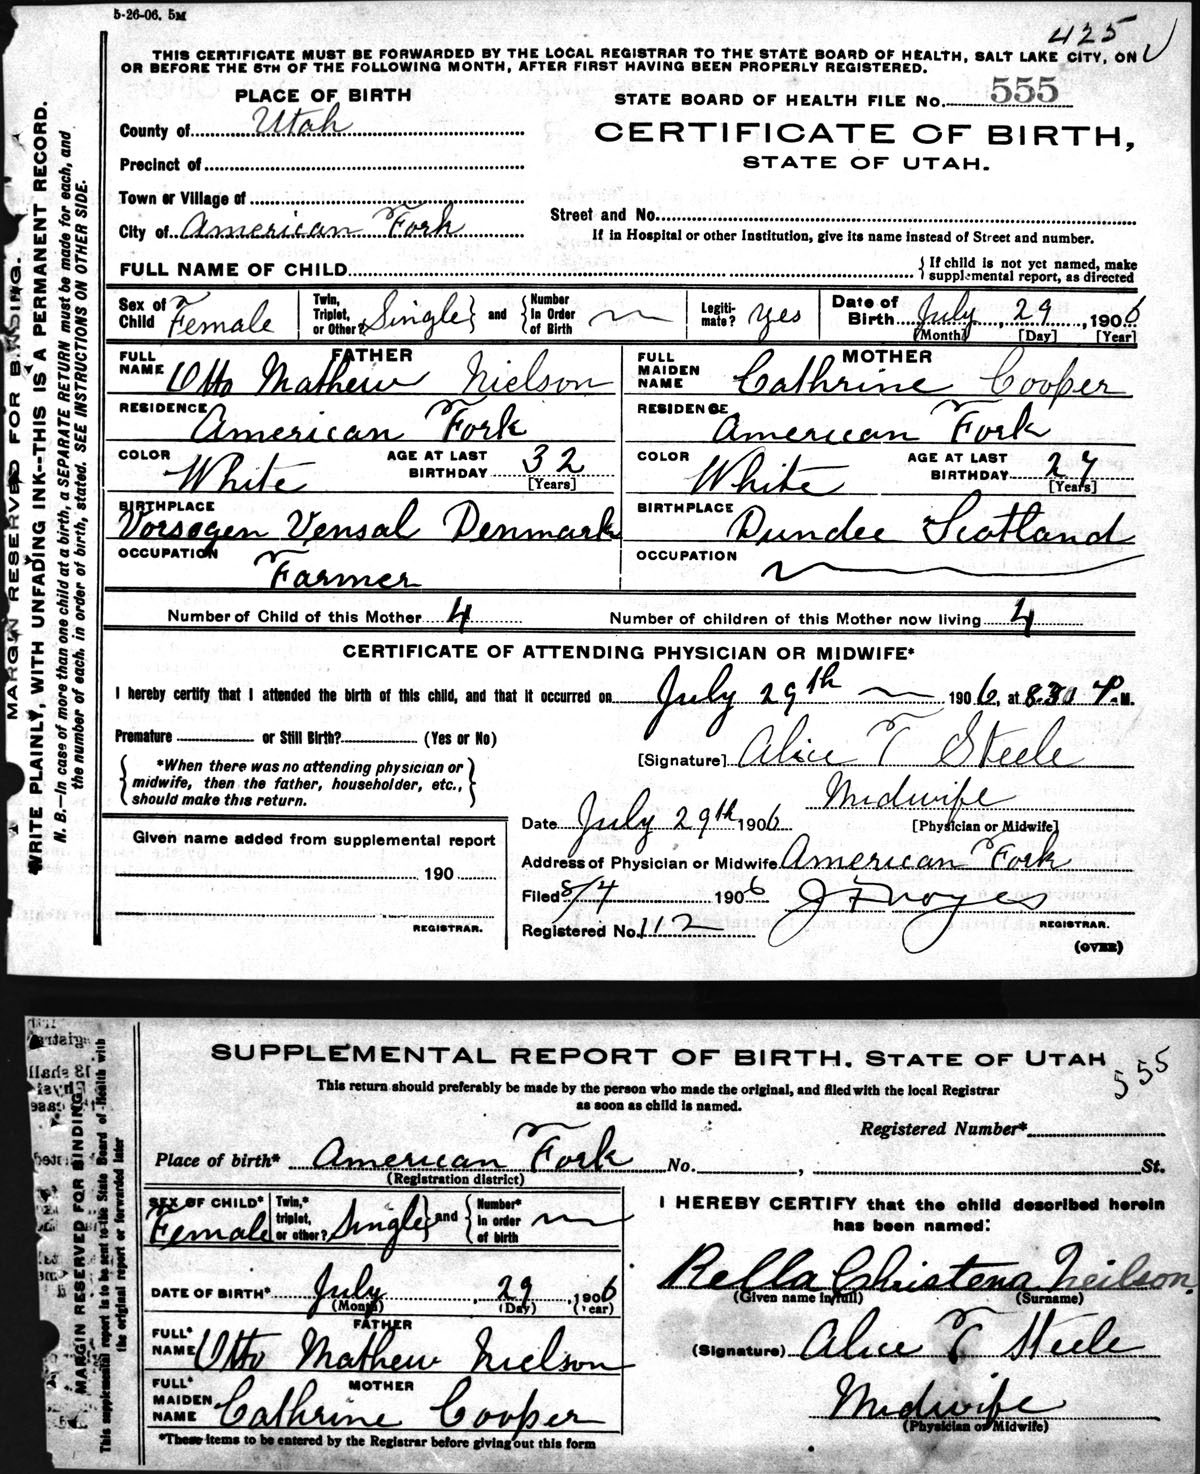 5-26-06. 5M
425
THIS CERTIFICATE MUST BE FORWARDED BY THE LOCAL REGISTRAR TO THE STATE BOARD OF HEALTH, SALT LAKE CITY, ON
OR BEFORE THE 5TH OF THE FOLLOWING MONTH, AFTER FIRST HAVING BEEN PROPERLY REGISTERED.
PLACE OF BIRTH
STATE BOARD OF HEALTH FILE No. 555
County of Utah
CERTIFICATE OF BIRTH,
STATE OF UTAH.
Precinct of
Town or Village of
Street and No.
City of American Fork
If in Hospital or other Institution, give its name instead of Street and number.
FULL NAME OF CHILD
{ If child is not yet named, make
supplemental report, as directed
Sex of Child Female
Twin, Triplet, or Other? Single } and { Number In Order of Birth
Legiti-mate? Yes
Date of Birth July, 29, 1906
[Month] [Day] [Year]
FATHER
FULL NAME Otto Mathew Nielson
MOTHER
FULL MAIDEN NAME Cathrine Cooper
RESIDENCE American Fork
RESIDENCE American Fork
COLOR White AGE AT LAST BIRTHDAY 32 [Years]
COLOR White AGE AT LAST BIRTHDAY 27 [Years]
BIRTHPLACE Vorsogen Vensal Denmark
BIRTHPLACE Dundee Scotland
OCCUPATION Farmer
OCCUPATION
Number of Child of this Mother 4
Number of children of this Mother now living 4
CERTIFICATE OF ATTENDING PHYSICIAN OR MIDWIFE*
I hereby certify that I attended the birth of this child, and that it occurred on July 29th 1906, at 8.30 P.M.
Premature or Still Birth? (Yes or No)
[Signature] Alice T Steele
{ *When there was no attending physician or
midwife, then the father, householder, etc.,
should make this return. }
Midwife
Date July 29th 1906 [Physician or Midwife]
Given name added from supplemental report
Address of Physician or Midwife American Fork
190
Filed 8/4 1906 J F Noyes
REGISTRAR.
REGISTRAR.
Registered No. 112
(OVER)
MARGIN RESERVED FOR BINDING.
WRITE PLAINLY, WITH UNFADING INK--THIS IS A PERMANENT RECORD.
N. B.—In case of more than one child at a birth, a SEPARATE RETURN must be made for each, and
the number of each, in order of birth, stated. SEE INSTRUCTIONS ON OTHER SIDE.
SUPPLEMENTAL REPORT OF BIRTH. STATE OF UTAH
555
This return should preferably be made by the person who made the original, and filed with the local Registrar
as soon as child is named.
Registered Number*
Place of birth* American Fork No. , St.
(Registration district)
SEX OF CHILD* Female
Twin,* triplet, or other? Single } and { Number* in order of birth
I HEREBY CERTIFY that the child described herein
has been named:
DATE OF BIRTH* July, 29, 1906
(Month) (Day) (Year)
Rella Christena Neilson
(Given name in full) (Surname)
FATHER
FULL* NAME Otto Mathew Nielson
(Signature) Alice T Steele
MOTHER
FULL* MAIDEN NAME Cathrine Cooper
Midwife
(Physician or Midwife)
*These items to be entered by the Registrar before giving out this form
MARGIN RESERVED FOR BINDING.
This supplemental report is to be sent to the State Board of Health with
the original report or forwarded later